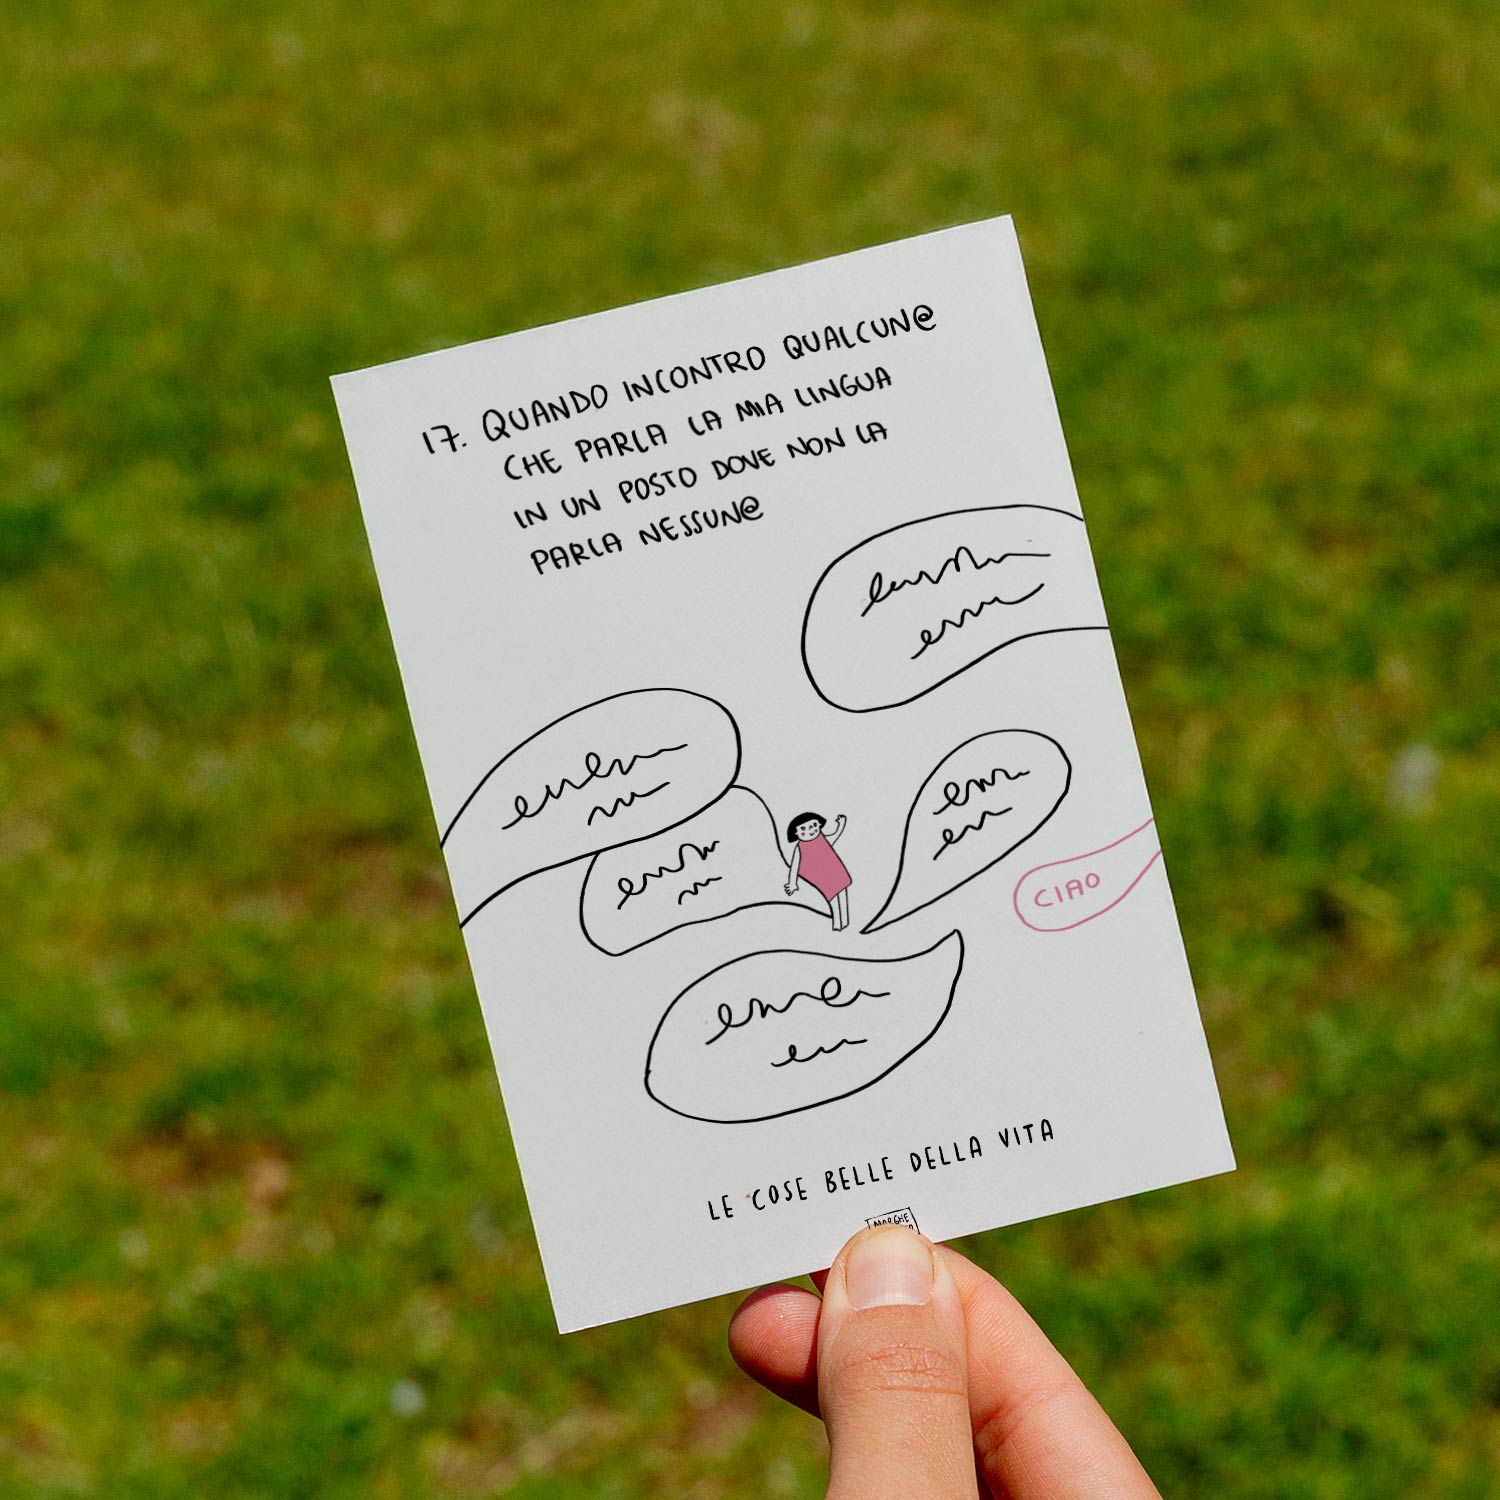 17. QUANDO INCONTRO QUALCUN@
CHE PARLA LA MIA LINGUA
IN UN POSTO DOVE NON LA
PARLA NESSUN@
CIAO
LE COSE BELLE DELLA VITA
MARGHE